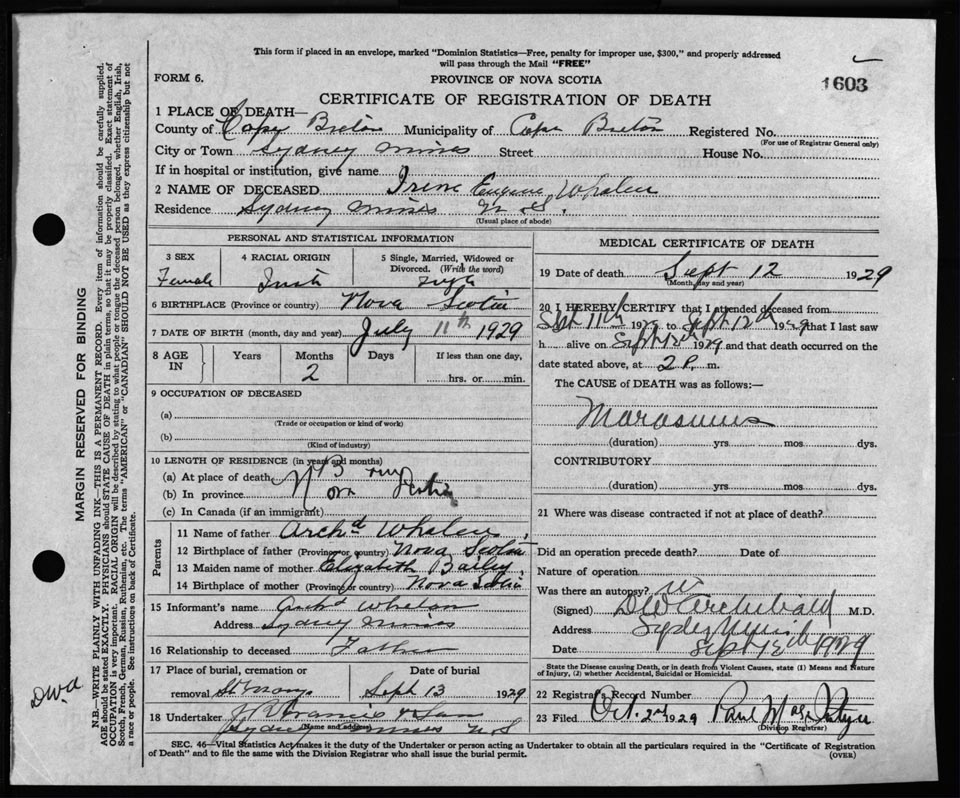 This form if placed in an envelope, marked "Dominion Statistics—Free, penalty for improper use, $300," and properly addressed
will pass through the Mail "FREE"
FORM 6.
PROVINCE OF NOVA SCOTIA
1603
CERTIFICATE OF REGISTRATION OF DEATH
1 PLACE OF DEATH—
County of Cape Breton Municipality of Cape Breton Registered No.
(For use of Registrar General only)
City or Town Sydney Mines Street House No.
If in hospital or institution, give name
2 NAME OF DECEASED Irene Eugene Whalen
Residence Sydney Mines N. S.
(Usual place of abode)
PERSONAL AND STATISTICAL INFORMATION
3 SEX Female
4 RACIAL ORIGIN Irish
5 Single, Married, Widowed or
Divorced. (Write the word)
Single
6 BIRTHPLACE (Province or country) Nova Scotia
7 DATE OF BIRTH (month, day and year) July 11th 1929
8 AGE IN
Years Months Days If less than one day,
2
hrs. or min.
9 OCCUPATION OF DECEASED
(a)
(Trade or occupation or kind of work)
(b)
(Kind of industry)
10 LENGTH OF RESIDENCE (in years and months)
(a) At place of death
(b) In province
(c) In Canada (if an immigrant)
Parents
11 Name of father Archd Whalen
12 Birthplace of father (Province or country) Nova Scotia
13 Maiden name of mother Elizabeth Bailey
14 Birthplace of mother (Province or country) Nova Scotia
15 Informant's name Archd Whalen
Address Sydney Mines
16 Relationship to deceased Father
17 Place of burial, cremation or Date of burial
removal St Marys Sept 13 1929
18 Undertaker J D Francis & Son
(Name and address)
Sydney Mines N S
MEDICAL CERTIFICATE OF DEATH
19 Date of death Sept 12 1929
(Month, day and year)
20 I HEREBY CERTIFY that I attended deceased from
Sept 11th 1929 to Sept 12th 1929 that I last saw
h alive on Sept 12th 1929 and that death occurred on the
date stated above, at 2 P. m.
The CAUSE OF DEATH was as follows:—
Marasmus
(duration) yrs mos dys.
CONTRIBUTORY
(duration) yrs mos dys.
21 Where was disease contracted if not at place of death?
Did an operation precede death? Date of
Nature of operation
Was there an autopsy?
(Signed) DW Archibald M.D.
Address Sydney Mines
Date Sept 1929
State the Disease causing Death, or in death from Violent Causes, state (1) Means and Nature
of Injury, (2) whether Accidental, Suicidal or Homicidal.
22 Registrar's Record Number
23 Filed Oct. 2nd 1929 Paul MacIntyre
(Division Registrar)
SEC. 46—Vital Statistics Act makes it the duty of the Undertaker or person acting as Undertaker to obtain all the particulars required in the "Certificate of Registration
of Death" and to file the same with the Division Registrar who shall issue the burial permit.
(OVER)
MARGIN RESERVED FOR BINDING
N.B.—WRITE PLAINLY WITH UNFADING INK—THIS IS A PERMANENT RECORD. Every item of information should be carefully supplied.
AGE should be stated EXACTLY. PHYSICIANS should STATE CAUSE OF DEATH in plain terms, so that it may be properly classified. Exact statement of
OCCUPATION is very important. RACIAL ORIGIN will be described by stating to what people or tongue the deceased person belonged, whether English, Irish,
Scotch, French, German, Russian, Ruthenian, etc. The terms "AMERICAN" or "CANADIAN" SHOULD NOT BE USED as they express citizenship but not
a race or people. See instructions on back of Certificate.